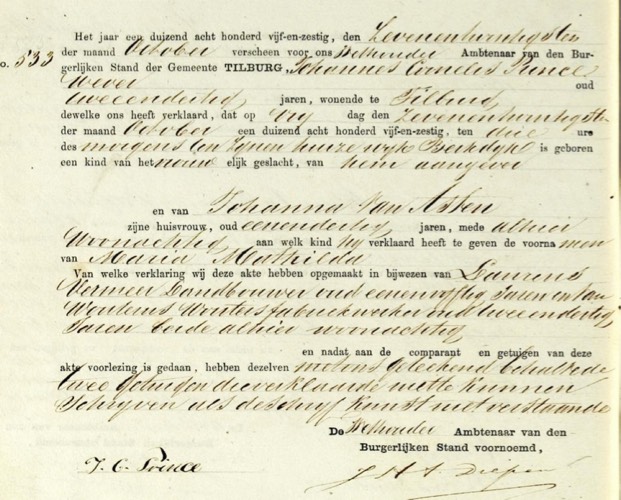 Het jaar een duizend acht honderd vijf-en-zestig, den Zevenentwintigsten
der maand October verscheen voor ons Wethouder Ambtenaar van den Bur-
o. 533 gerlijken Stand der Gemeente TILBURG, Johannes Cornelis Prince
Wever oud
tweeendertig jaren, wonende te Tilburg
dewelke ons heeft verklaard, dat op Vrij dag den Zevenentwintigsten
der maand October een duizend acht honderd vijf-en-zestig, ten drie ure
des morgens ten zijnen huize wijk Berkdijk is geboren
een kind van het vrouw elijk geslacht, van hem aangever
en van Johanna Van Asten
zijne huisvrouw, oud eenendertig jaren, mede alhier
Woonachtig aan welk kind hij verklaard heeft te geven de voorna men
van Maria Mathilda
Van welke verklaring wij deze akte hebben opgemaakt in bijwezen van Laurens
Vermeer Landbouwer oud eenenvijftig Jaren en van
Wouterus Wouters fabriekwerker oud tweeendertig
Jaren beide alhier woonachtig
en nadat aan de comparant en getuigen van deze
akte voorlezing is gedaan, hebben dezelven met ons geteekend behalve de
twee getuigen die verklaarde niet te kunnen
Schrijven als de schrijf kunst niet verstaande
De Wethouder Ambtenaar van den
Burgerlijken Stand voornoemd,
J. C. Prince